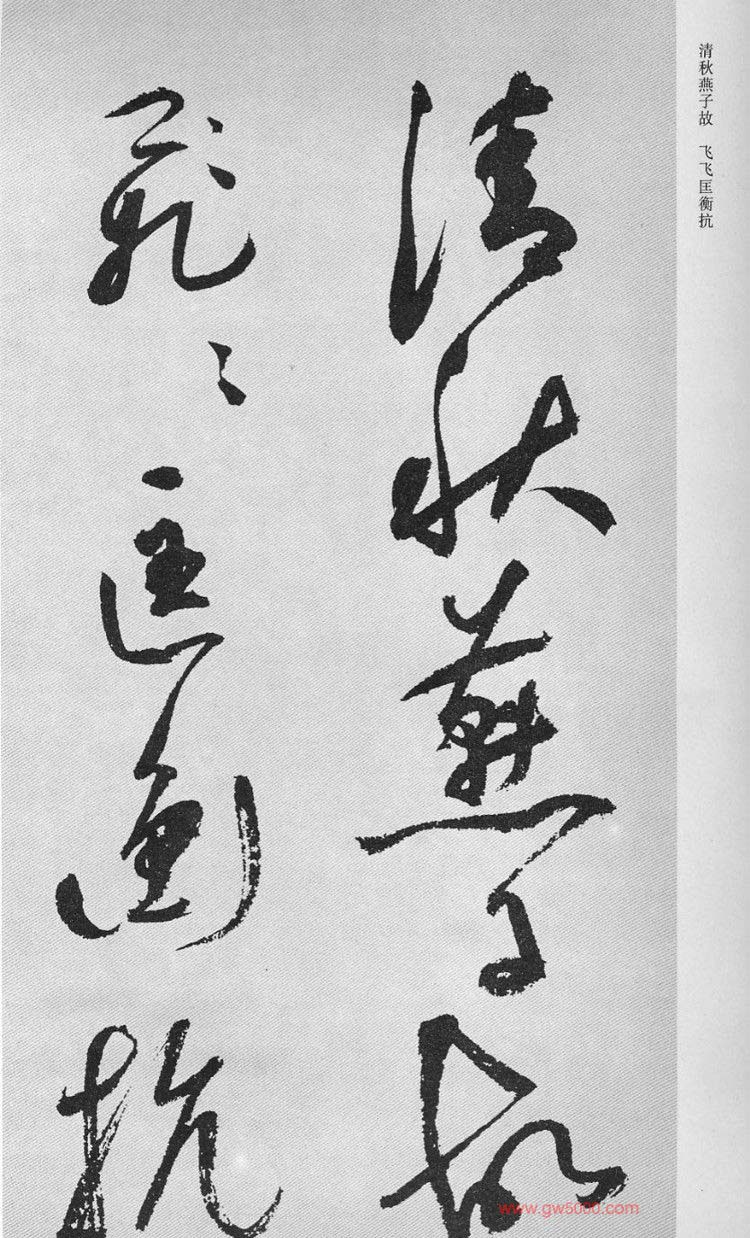 清秋燕子故 飞飞匡衡抗
清秋燕子故
飛〻匡衡抗
www.gw5000.com